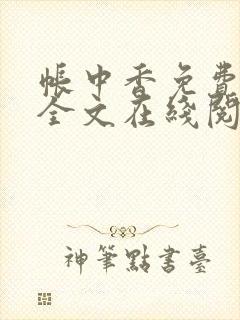 帳中香免費
全文在綫閱
神筆點書臺